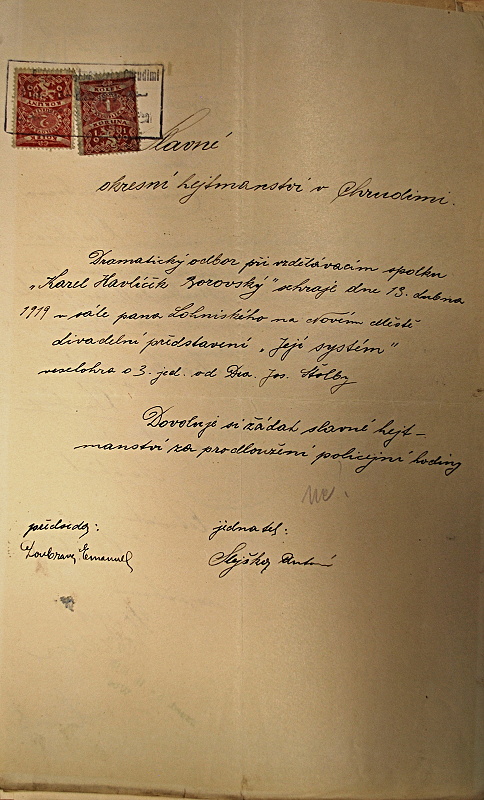 Chrudimi
KOLEK
1
KORUNA
Slavné
okresní hejtmanství v Chrudimi.
Dramatický odbor při vzdělávacím spolku
„Karel Havlíček Borovský" sehraje dne 13. dubna
1919 v sále pana Lohniského na Novém Městě
divadelní představení „Její systém"
veselohra o 3. jed. od Dra. Jos. Štolby
Dovoluje si žádat slavné hejt-
manství za prodloužení policejní hodiny
ne!
předseda: jednatel:
Emanuel Antonín